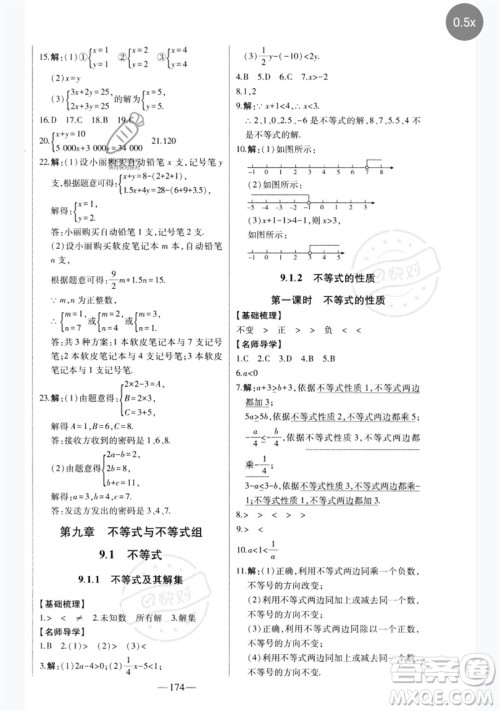 0.5x
15.解:(1)①{x=1 y=1 ②{x=2 y=2 ③{x=4 y=4
(2)x=y
(3){3x+2y=25, 2x+3y=25 的解为{x=5, y=5
16.D 17.C 18.A 19.A
20.{x+y=10 5 000x+3 000y=34 000 21.120
22.解:(1)设小丽购买自动铅笔 x 支,记号笔 y 支,
根据题意可得:{x+y=8-(2+2+1), 1.5x+4y=15-(9+2+1.5),
解得:{x=1, y=2.
答:小丽购买自动铅笔 1 支,记号笔 2 支.
(2)设小丽购买软皮笔记本 m 本,自动铅笔 n 支,根据题意可得:
9/2 m+1.5n=15,
∵m,n 为正整数,
∴{m=1, n=7 或{m=2, n=4 或{m=3, n=1.
答:共 3 种方案:1 本软皮笔记本与 7 支自动铅笔;
2 本软皮笔记本与 4 支自动铅笔;
3 本软皮笔记本与 1 支自动铅笔.
23.解:(1)由题意得:
解得 A=1,B=6,C=8,
答:接收方收到的密码是 1,6,8.
(2)由题意得:{2a-b=2, 2b=8, b+c=11,
解得:a=3,b=4,c=7,
答:发送方发出的密码是 3,4,7.
第九章 不等式与不等式组
9.1 不等式
9.1.1 不等式及其解集
【基础梳理】
1.> < ≠ 2.未知数 所有解 3.解集
【名师导学】
1.B 2.D
3.解:(1)2a-4>0;(2)1/4x-5<1;
(3)1/2y-(-10)<2y
4.B 5.A 6.D 7.x>-1
8.1,2
9.解:∵x+1<4,∴x<3.
∴2,1,0,-1是不等式的解;3,4不是不等式的解.
10.解:(1)如图所示:
-1 0 1 2 3 4 5 6 7 8
(2)如图所示:
-5 -4 -3 -2 -1 0 1 2 3 4
(3)x+1>4-1,∴x>2,如图所示:
-3 -2 -1 0 1 2 3 4 5 6
9.1.2 不等式的性质
第一课时 不等式的性质
【基础梳理】
不变 > 正 > > 负 < <
【名师导学】
1.C 2.C 3.D 4.B 5.C
6.a<0
7.解:a+3>b+3,依据不等式性质1,不等式两边都加 3;
5a>5b,依据不等式性质2,不等式两边都乘 5;
-a/4<-b/4,依据不等式性质3,不等式两边都乘-1/4;
a-1>b-1,依据不等式性质1,不等式两边都加-1.
8.C
9.> > < < >
10.a<1<1/a
11.解:(1)正确,利用不等式两边同乘一个负数,不等号的方向改变;
(2)利用不等式两边同加上或减去一个数,不等号的方向不变;
(3)正确,利用不等式两边同乘一个正数,不等号的方向不变;
(4)正确,利用不等式两边同加上或减去一个数,不等号的方向不变.
—174—
快对
答案圈
MXQE.COM